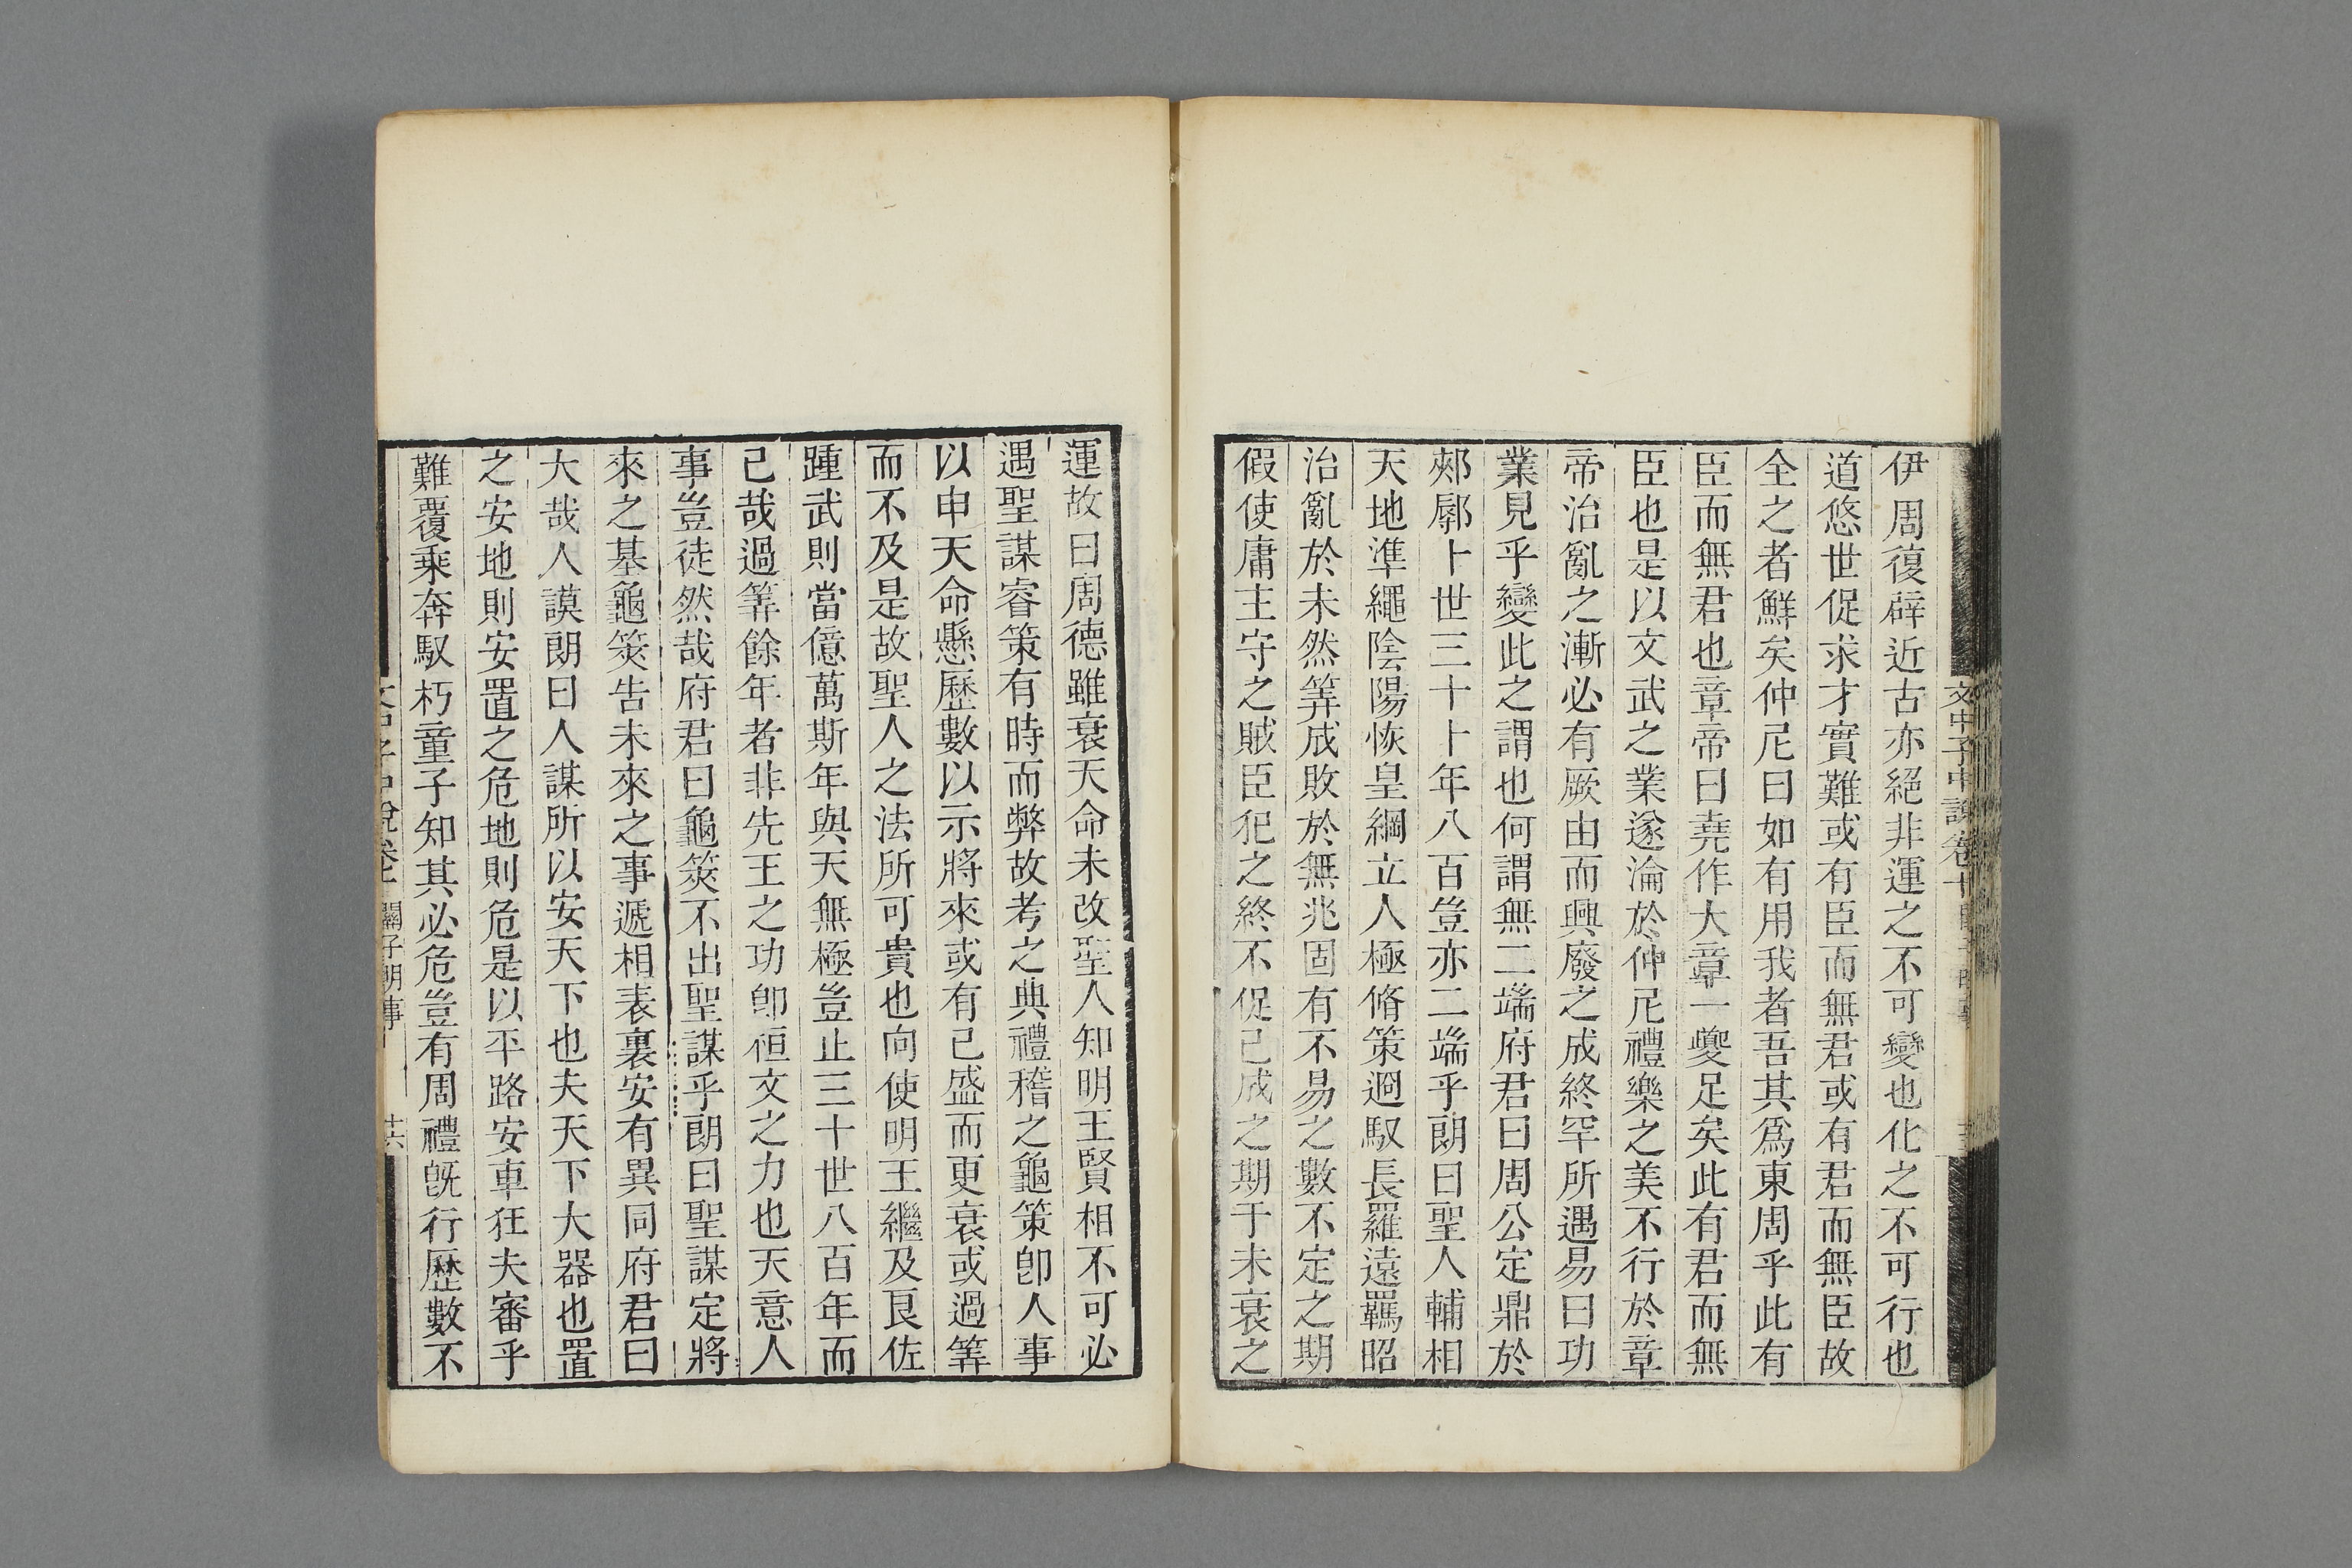 伊周復辟近古亦絕非運之不可變也化之不可行也
道悠世促求才實難或有臣而無君或有君而無臣故
全之者鮮矣仲尼曰如有用我者吾其爲東周乎此有
臣而無君也章帝曰堯作大章一夔足矣此有君而無
臣也是以文武之業遂淪於仲尼禮樂之美不行於章
帝治亂之漸必有厥由而興廢之成終罕所遇易曰功
業見乎變此之謂也何謂無二端府君曰周公定鼎於
郟鄏卜世三十卜年八百豈亦二端乎朗曰聖人輔相
天地準繩陰陽恢皇綱立人極脩策迥馭長羅遠羈昭
治亂於未然筭成敗於無兆固有不易之數不定之期
假使庸主守之賊臣犯之終不促已成之期于未衰之
運故曰周德雖衰天命未改聖人知明王賢相不可必
遇聖謀睿策有時而弊故考之典禮稽之龜策卽人事
以申天命懸歷數以示將來或有已盛而更衰或過筭
而不及是故聖人之法所可貴也向使明王繼及良佐
踵武則當億萬斯年與天無極豈止三十世八百年而
已哉過筭餘年者非先王之功卽桓文之力也天意人
事豈徒然哉府君曰龜筴不出聖謀乎朗曰聖謀定將
來之基龜筴告未來之事遞相表裏安有異同府君曰
大哉人謨朗曰人謀所以安天下也夫天下大器也置
之安地則安置之危地則危是以平路安車狂夫審乎
難覆乘奔馭朽童子知其必危豈有周禮旣行歷數不
文中子中說卷十
關子明事
十六